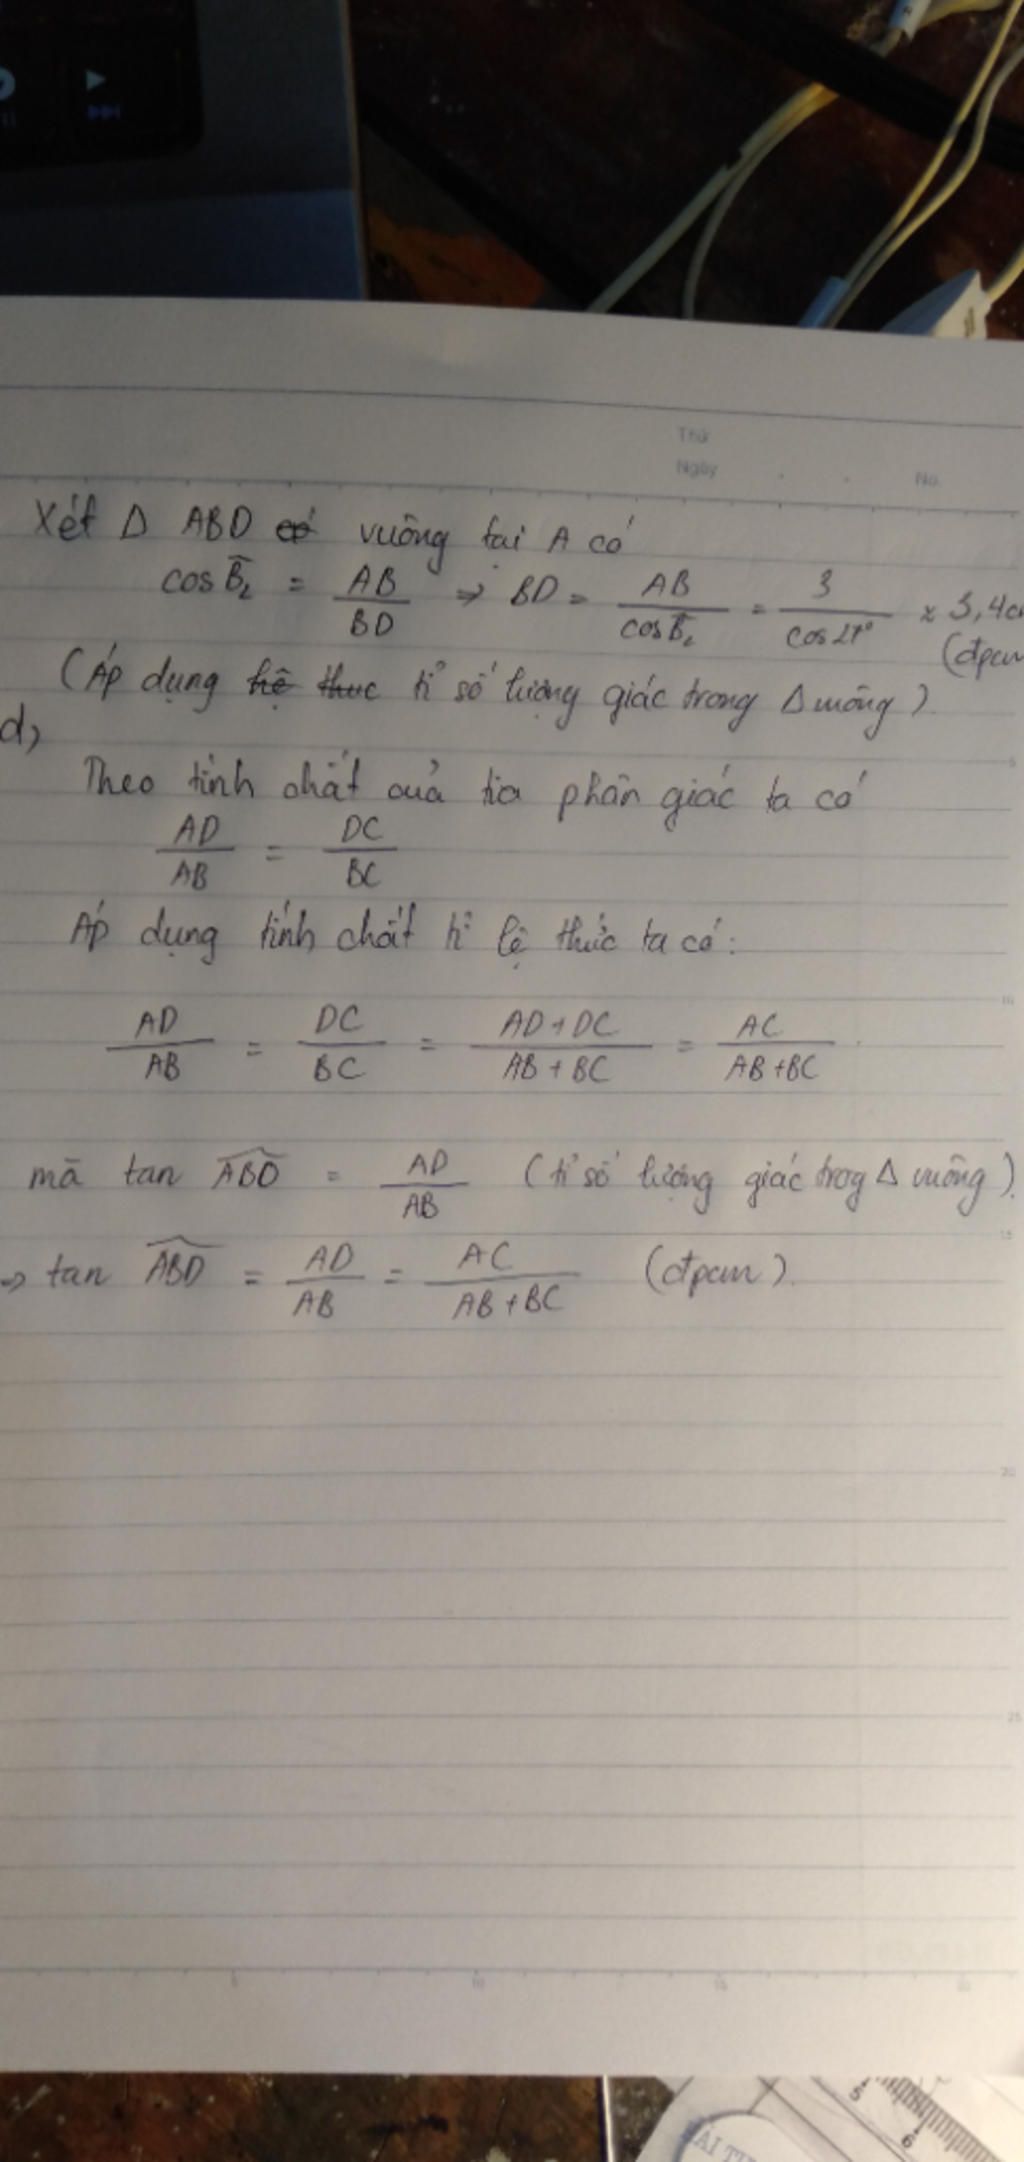 Thứ
Ngày . . No.
Xét Δ ABD vuông tại A có
cos B̂₂ = AB/BD => BD = AB/cos B̂₂ = 3/cos 27° ≈ 3,4c
(đpcm
(Áp dụng hệ thức tỉ số lượng giác trong Δ vuông).
d,
Theo tính chất của tia phân giác ta có
AD/AB = DC/BC
Áp dụng tính chất tỉ lệ thức ta có:
AD/AB = DC/BC = AD+DC/AB+BC = AC/AB+BC
mà tan ABD = AD/AB (tỉ số lượng giác trog Δ vuông).
=> tan ABD = AD/AB = AC/AB+BC (đpcm).
5
10
15
20
25
5 10 15 20
5
6